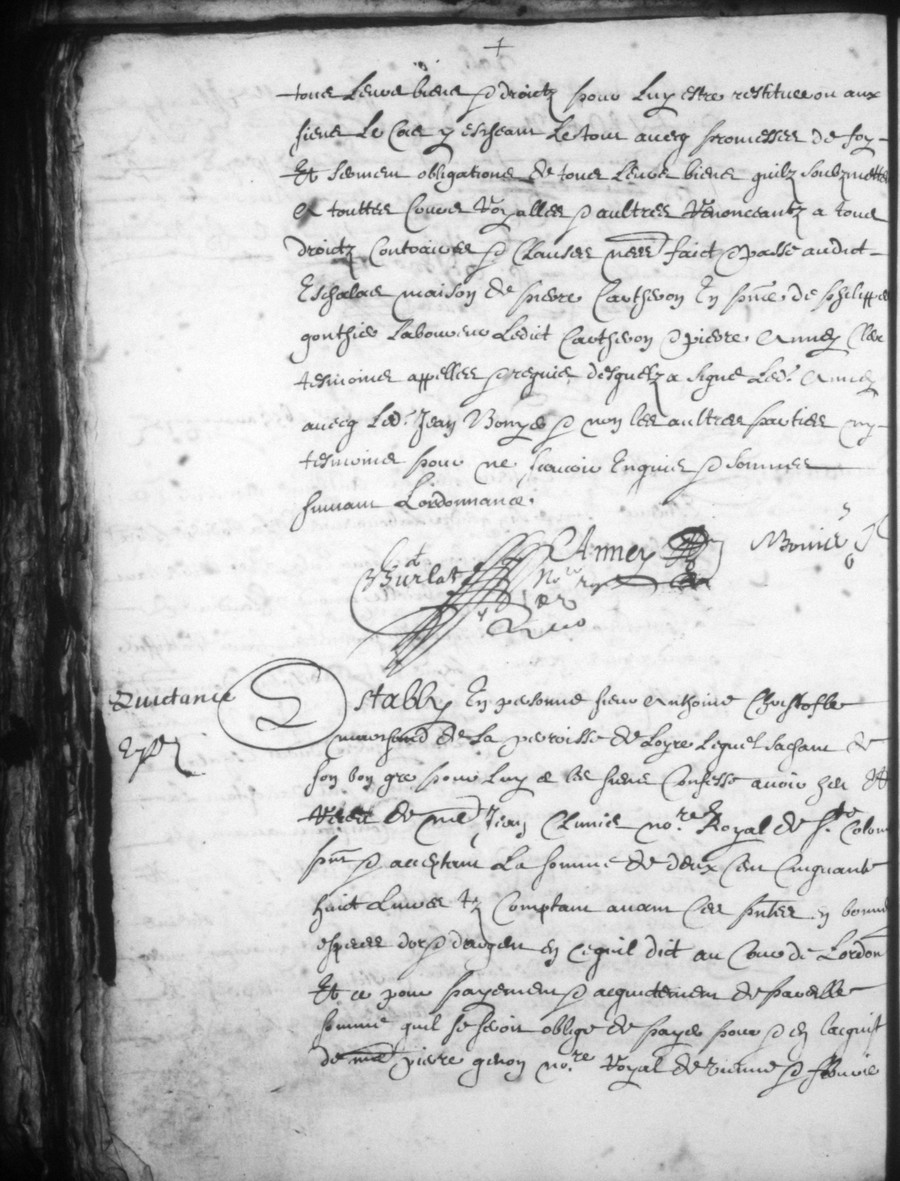 +
tous leurs biens & droictz pour luy estre restitues ou aux
siens le cas y escheant le tout avecq promesses de foy
Et serment obligations de tous leurs biens quilz soubzmettent
a touttes Cours Royalles & aultres Renonceantz a tous
droictz Contraires & Clauses faict & passe audict
Eschalas maison de pierre Cartheron En pnce de philippe
gonthier Laboureur Ledict Cartheron & pierre Anney Clerc
tesmoins appelles & requis desquelz a signe Led. Anney
avecq Led. Jean Bonyer & non les aultres parties ny
tesmoins pour ne scavoir Enquis & sommes
suivant Lordonnance.
Burlat Anney Bonier
Nore
Quictance
Estably En personne sieur Anthoine Christofle
marchand de La parroisse de Loyre Lequel sachant de
son bon gre pour Luy & les siens Confesse avoir heu Et
Receu de me Jean Clunie nore Royal de Ste Colombe
pnt & acceptant La somme de deux Cent Cinquante
huict Livres tz Comptant avant Ces pntes en bonnes
especes dor & dargent en ce quil dict au Cours de Lordon
Et ce pour payement & acquictement de pareille
somme quil se seroit oblige de payer pour & en lacquist
de me pierre genon nore Royal de vienne &